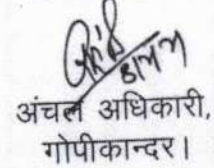 अंचल अधिकारी,
गोपीकान्दर।